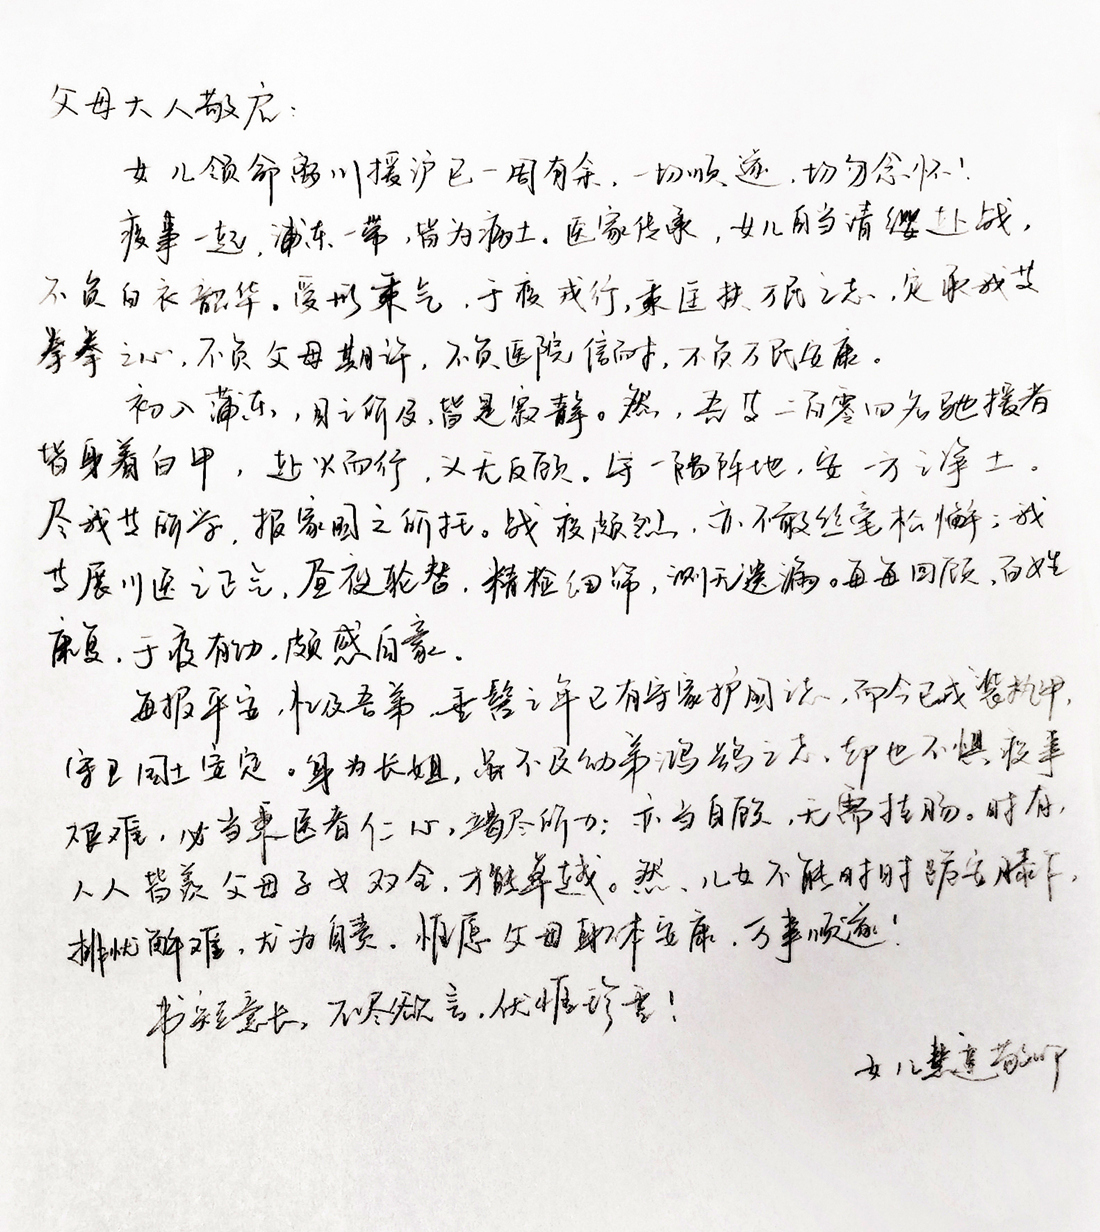 父母大人敬启：
女儿领命离川援沪已一周有余，一切顺遂，切勿念怀！
疫事一起，浦东一带，皆为病土。医家传承，女儿自当请缨赴战，
不负白衣韶华。受形秉气，于疫戎行，秉匡扶万民之志，定承我等
拳拳之心，不负父母期许，不负医院信任，不负万民安康。
初入蒲东，目之所及，皆是寂静。然，吾等二百零四名驰援者
皆身着白甲，赴火而行，义无反顾。守一隅阵地，安一方之净土。
尽我等所学，报家国之所托。战疫颇烈，亦不敢丝毫松懈；我
等展川医之正气，昼夜轮替，精检细筛，测无遗漏。每每回顾，百姓
康复，于疫有功，颇感自豪。
每报平安，忆及吾弟，垂髫之年已有守家护国之志，而今已戎装执甲，
守卫国土安定。身为长姐，虽不及幼弟鸿鹄之志，却也不惧疫事
艰难，必当秉医者仁心，竭尽所力；亦当自顾，无需挂肠。时有，
人人皆羡父母子女双全，才能卓越。然、儿女不能时时踞安膝下，
排忧解难，尤为自责。惟愿父母身体安康，万事顺遂！
书短意长，不尽欲言，伏惟珍重！
女儿慧莲敬叩